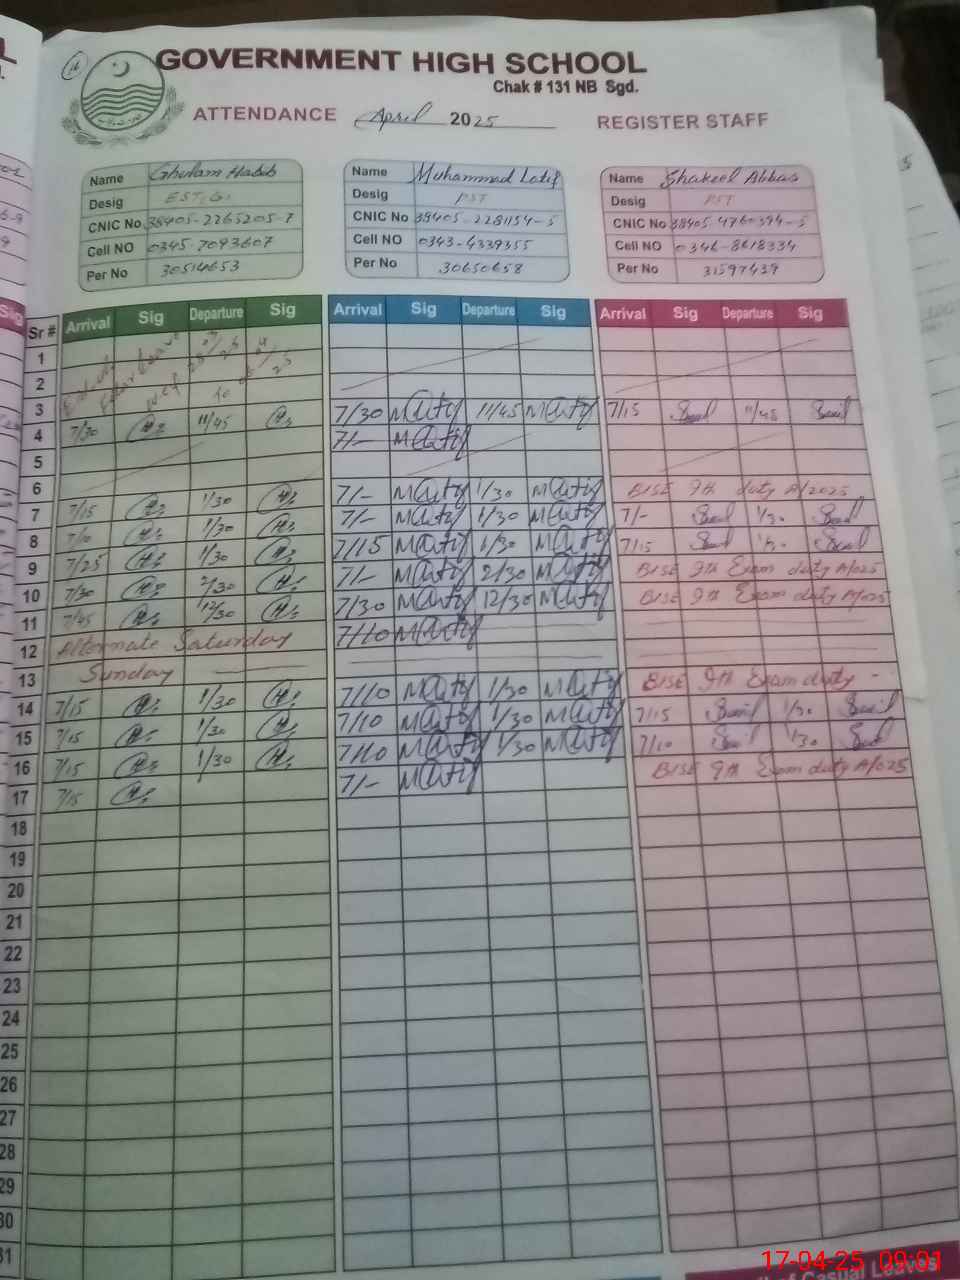 GOVERNMENT HIGH SCHOOL
Chak # 131 NB Sgd.
ATTENDANCE April 2025 REGISTER STAFF
Name Ghulam Habib Name Muhammad Latif Name Shakeel Abbas
Desig Desig PST Desig PST
CNIC No 38405-2265205-7 CNIC No 38405-2281154-5 CNIC No 38405-4760394-5
Cell NO 0345-7093607 Cell NO 0343-4339355 Cell NO 0346-8618334
Per No 30514653 Per No 30650658 Per No 31597439
Sr # Arrival Sig Departure Sig Arrival Sig Departure Sig Arrival Sig Departure Sig
1
2
3 7/30 11/45 7/30 MLatif 11/45 MLatif 7/15 11/45
4 7/- MLatif
5
6 7/15 1/30 7/- MLatif 1/30 MLatif BISE 9th duty A/2025
7 7/10 1/30 7/- MLatif 1/30 MLatif 7/- 1/30
8 7/25 1/30 7/15 MLatif 1/30 MLatif 7/15 1/30
9 7/30 2/30 7/- MLatif 2/30 MLatif BISE 9th Exam duty A/025
10 7/45 12/30 7/30 MLatif 12/30 MLatif BISE 9th Exam duty A/025
11 Alternate Saturday 7/10 MLatif
12 Sunday
13 7/15 1/30 7/10 MLatif 1/30 MLatif BISE 9th Exam duty
14 7/15 1/30 7/10 MLatif 1/30 MLatif 7/15 1/30
15 7/15 1/30 7/10 MLatif 1/30 MLatif 7/10 1/30
16 7/15 7/- MLatif BISE 9th Exam duty A/025
17
18
19
20
21
22
23
24
25
26
27
28
29
30
31
Casual Leaves
17-04-25 09:01